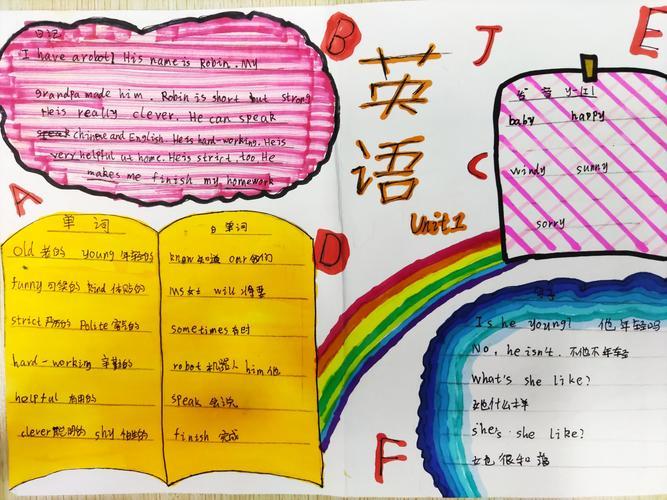 日记
I have a robot! His name is Robin. My
grandpa made him. Robin is short but strong
He is really clever. He can speak
chinese and English. He is hard-working. He is
very helpful at home. He is strict, too He
makes me finish my homework
A
B
英
语
Unit 1
J
E
C
D
F
发音 y-[i]
baby happy
windy sunny
sorry
单词
old 老的 young 年轻的
funny 可笑的 kind 体贴的
strict 严厉的 Polite 有礼的
hard-working 辛勤的
helpful 有用的
clever 聪明的 shy 怕生的
单词
know 知道 our 我们的
Ms 女士 will 将要
sometimes 有时
robot 机器人 him 他
speak 会说
finish 完成
句子
Is he young? 他年轻吗
No, he isn't. 不他不年轻
What's she like?
她什么样
she's she like?
她很和蔼